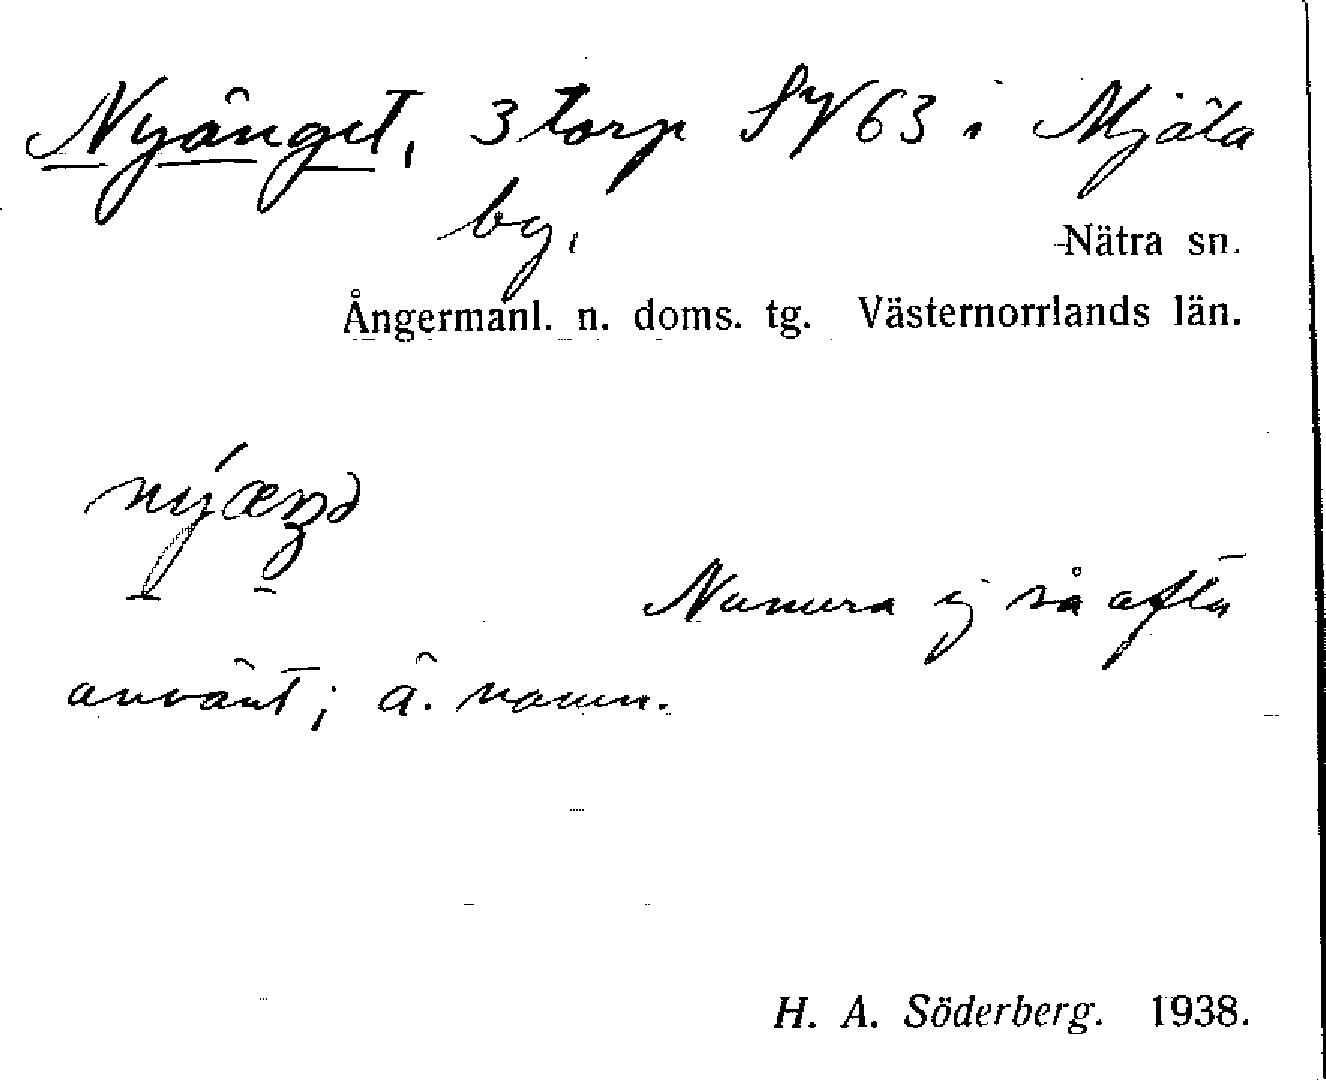 Nyänget, 3 torp SV 63 i Mjäla
by,
Nätra sn.
Ångermanl. n. doms. tg. Västernorrlands län.
nýæŋə
Numera ej så ofta
använt; ä. namn.
H. A. Söderberg. 1938.